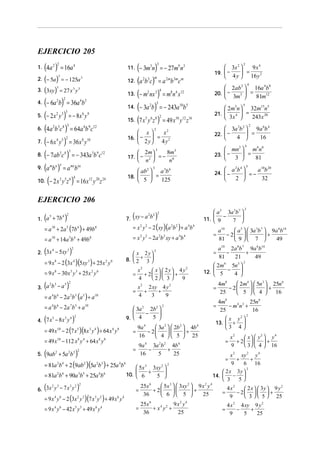 EJERCICIO 205
1. (4a²)² = 16a⁴
2. (− 5a)³ = − 125a³
3. (3xy)³ = 27x³y³
4. (− 6a²b)² = 36a⁴b²
5. (− 2x²y)³ = − 8x⁶y³
6. (4a²b³c⁴)³ = 64a⁶b⁹c¹²
7. (− 6x⁴y⁵)² = 36x⁸y¹⁰
8. (− 7ab³c⁴)³ = − 343a³b⁹c¹²
9. (aᵐbⁿ)ˣ = aᵐˣbⁿˣ
10. (− 2x³y⁵z⁶)⁴ = 16x¹²y²⁰z²⁴
11. (− 3m³n)³ = − 27m⁹n³
12. (a²b³c)ᵐ = a²ᵐb³ᵐcᵐ
13. (− m²nx³)⁴ = m⁸n⁴x¹²
14. (− 3a²b)⁵ = − 243a¹⁰b⁵
15. (7x⁵y⁶z⁸)² = 49x¹⁰y¹²z¹⁶
16. (− x/2y)² = x²/4y²
17. (− 2m/n²)³ = − 8m³/n⁶
18. (ab²/5)³ = a³b⁶/125
19. (− 3x²/4y)² = 9x⁴/16y²
20. (− 2ab²/3m³)⁴ = 16a⁴b⁸/81m¹²
21. (2m³n/3x⁴)⁵ = 32m¹⁵n⁵/243x²⁰
22. (− 3a³b²/4)² = 9a⁶b⁴/16
23. (− mn²/3)⁴ = m⁴n⁸/81
24. (− a²b⁴/2)⁵ = − a¹⁰b²⁰/32
EJERCICIO 206
1. (a⁵ + 7b⁴)²
= a¹⁰ + 2a⁵(7b⁴) + 49b⁸
= a¹⁰ + 14a⁵b⁴ + 49b⁸
2. (3x⁴ − 5xy³)²
= 9x⁸ − 2(3x⁴)(5xy³) + 25x²y⁶
= 9x⁸ − 30x⁵y³ + 25x²y⁶
3. (a²b³ − a⁵)²
= a⁴b⁶ − 2a²b³(a⁵) + a¹⁰
= a⁴b⁶ − 2a⁷b³ + a¹⁰
4. (7x⁵ − 8x³y⁴)²
= 49x¹⁰ − 2(7x⁵)(8x³y⁴) + 64x⁶y⁸
= 49x¹⁰ − 112x⁸y⁴ + 64x⁶y⁸
5. (9ab² + 5a²b³)²
= 81a²b⁴ + 2(9ab²)(5a²b³) + 25a⁴b⁶
= 81a²b⁴ + 90a³b⁵ + 25a⁴b⁶
6. (3x²y³ − 7x³y²)²
= 9x⁴y⁶ − 2(3x²y³)(7x³y²) + 49x⁶y⁴
= 9x⁴y⁶ − 42x⁵y⁵ + 49x⁶y⁴
7. (xy − a²b³)²
= x²y² − 2(xy)(a²b³) + a⁴b⁶
= x²y² − 2a²b³xy + a⁴b⁶
8. (x/2 + 2y/3)²
= x²/4 + 2(x/2)(2y/3) + 4y²/9
= x²/4 + 2xy/3 + 4y²/9
9. (3a²/4 − 2b²/5)²
= 9a⁴/16 − 2(3a²/4)(2b²/5) + 4b⁴/25
= 9a⁴/16 − 3a²b²/5 + 4b⁴/25
10. (5x³/6 + 3xy²/5)²
= 25x⁶/36 + 2(5x³/6)(3xy²/5) + 9x²y⁴/25
= 25x⁶/36 + x⁴y² + 9x²y⁴/25
11. (a⁵/9 − 3a²b⁷/7)²
= a¹⁰/81 − 2(a⁵/9)(3a²b⁷/7) + 9a⁴b¹⁴/49
= a¹⁰/81 − 2a⁷b⁷/21 + 9a⁴b¹⁴/49
12. (2m⁴/5 − 5n³/4)²
= 4m⁸/25 − 2(2m⁴/5)(5n³/4) + 25n⁶/16
= 4m⁸/25 − m⁴n³ + 25n⁶/16
13. (x/3 + y²/4)²
= x²/9 + 2(x/3)(y²/4) + y⁴/16
= x²/9 + xy²/6 + y⁴/16
14. (2x/3 − 3y/5)²
= 4x²/9 − 2(2x/3)(3y/5) + 9y²/25
= 4x²/9 − 4xy/5 + 9y²/25